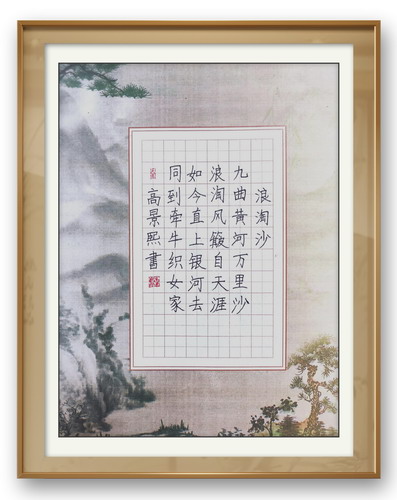 浪淘沙
九曲黄河万里沙
浪淘风簸自天涯
如今直上银河去
同到牵牛织女家
高景熙書